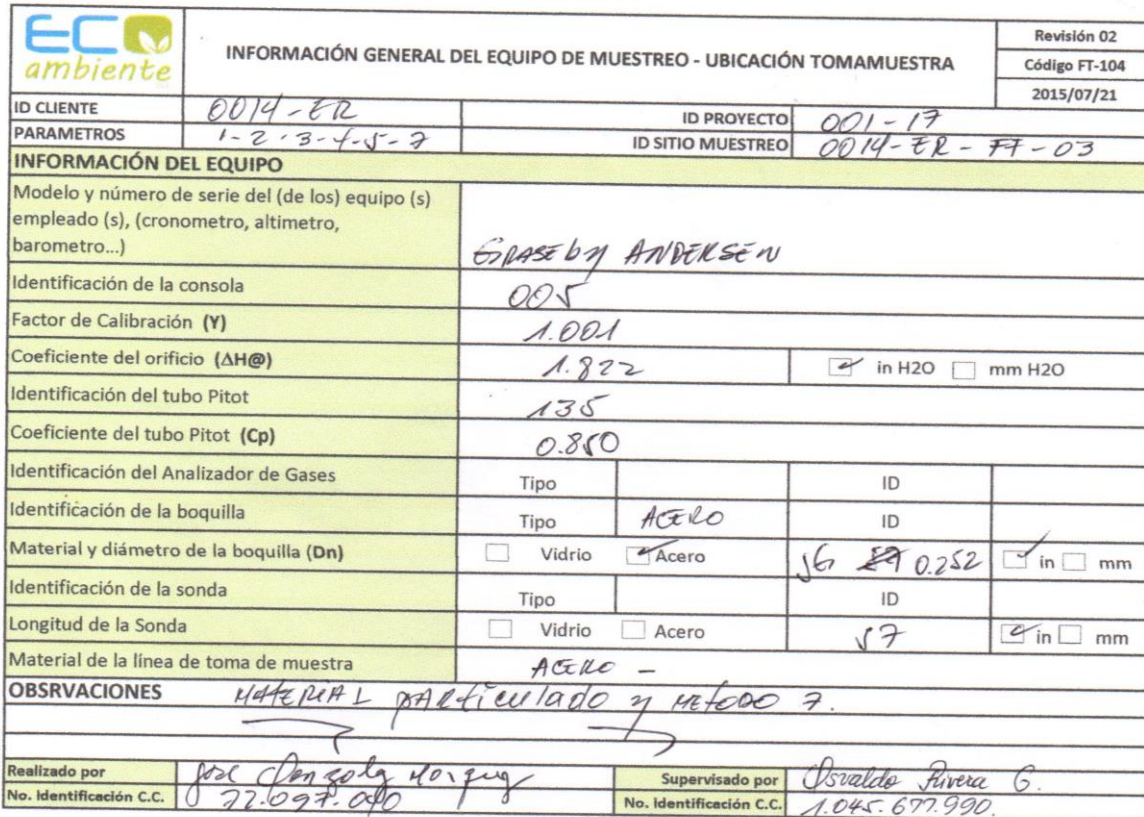 ECO
ambiente
INFORMACIÓN GENERAL DEL EQUIPO DE MUESTREO - UBICACIÓN TOMAMUESTRA
Revisión 02
Código FT-104
2015/07/21
ID CLIENTE 0014-ER ID PROYECTO 001-17
PARAMETROS 1-2-3-4-5-7 ID SITIO MUESTREO 0014-ER-FF-03
INFORMACIÓN DEL EQUIPO
Modelo y número de serie del (de los) equipo (s)
empleado (s), (cronometro, altimetro,
barometro...) GRASEby ANDERSEN
Identificación de la consola 005
Factor de Calibración (Y) 1.001
Coeficiente del orificio (ΔH@) 1.822 in H2O mm H2O
Identificación del tubo Pitot 135
Coeficiente del tubo Pitot (Cp) 0.850
Identificación del Analizador de Gases Tipo ID
Identificación de la boquilla Tipo ACERO ID
Material y diámetro de la boquilla (Dn) Vidrio Acero 0.252 in mm
Identificación de la sonda Tipo ID
Longitud de la Sonda Vidrio Acero 57 in mm
Material de la línea de toma de muestra ACERO -
OBSRVACIONES MATERIAL pARticulado y METODO 7.
Realizado por Jose Supervisado por Osvaldo Rivera G.
No. Identificación C.C. 72.097.040 No. Identificación C.C. 1.045.677.990.